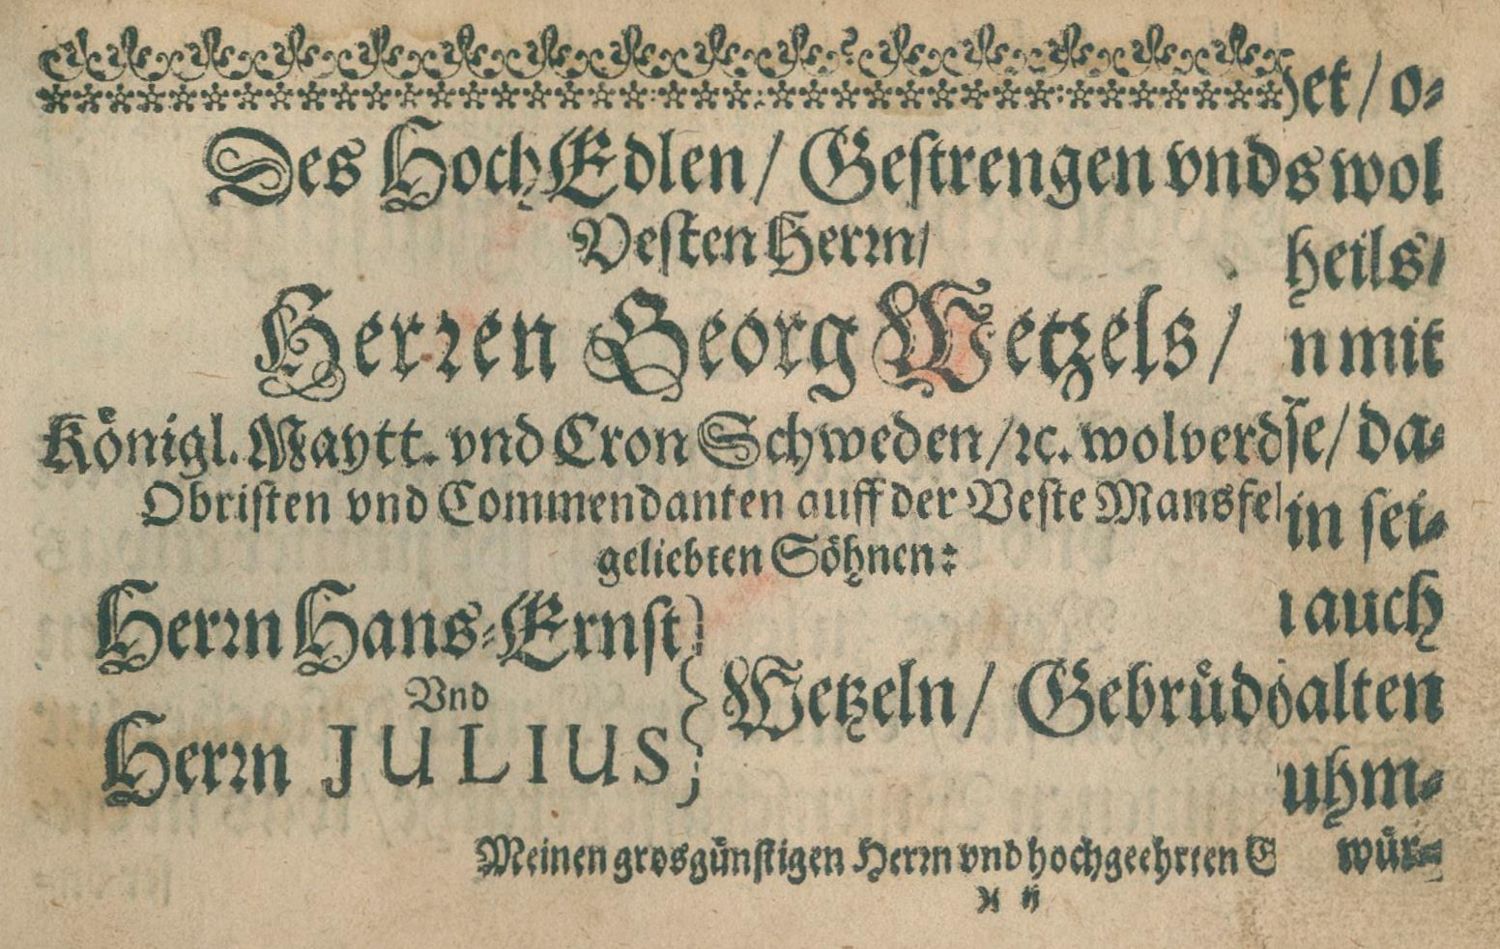 het / o⸗
Des HochEdlen / Gestrengen vnd
s wol
Vesten Herrn /
heils /
Herren Georg Wetzels /
n mit
Königl. Maytt. vnd Cron Schweden / ꝛc. wolverd
se / da⸗
Obristen vnd Commendanten auff der Veste Mansfel
in sei⸗
geliebten Söhnen:
auch
Herrn Hans⸗Ernst
Vnd
Wetzeln / Gebrüd
alten
Herrn JULIUS,
uhm⸗
Meinen grosgünstigen Herrn vnd hochgeehrten
wür⸗